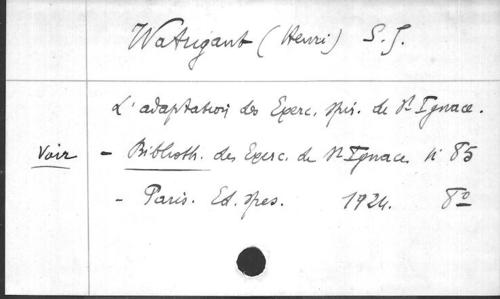 Watrigant (Henri) S.J.
L'adaptation des Exerc. spir. de St Ignace.
Voir - Biblioth. des Exerc. de St Ignace n° 85
- Paris. Ed. spes. 1924. 8°